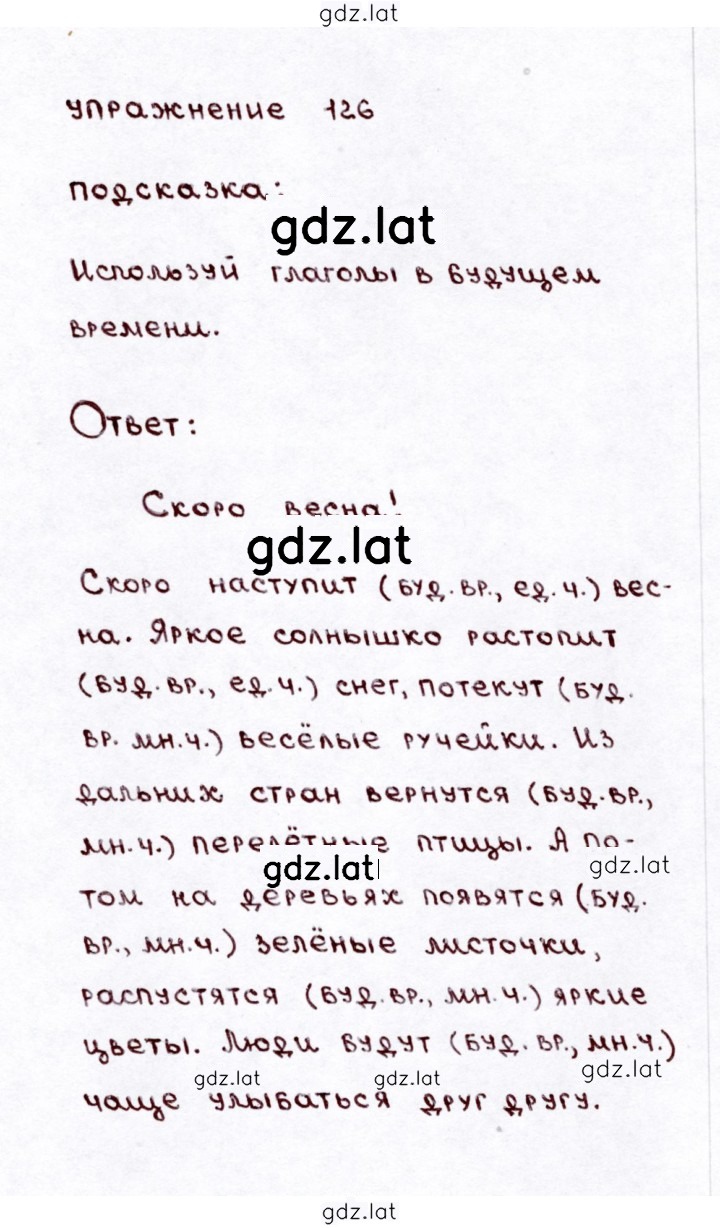 gdz.lat
упражнение 126
подсказка:
gdz.lat
Используй глаголы в будущем
времени.
Ответ:
Скоро весна!
gdz.lat
Скоро наступит (буд.вр., ед.ч.) вес-
на. Яркое солнышко растопит
(буд.вр., ед.ч.) снег, потекут (буд.
вр. мн.ч.) весёлые ручейки. Из
дальних стран вернутся (буд.вр.,
мн.ч.) перелётные птицы. А по-
gdz.lat gdz.lat
том на деревьях появятся (буд.
вр., мн.ч.) зелёные листочки,
распустятся (буд.вр., мн.ч.) яркие
цветы. Люди будут (буд.вр., мн.ч.)
gdz.lat gdz.lat gdz.lat
чаще улыбаться друг другу.
gdz.lat